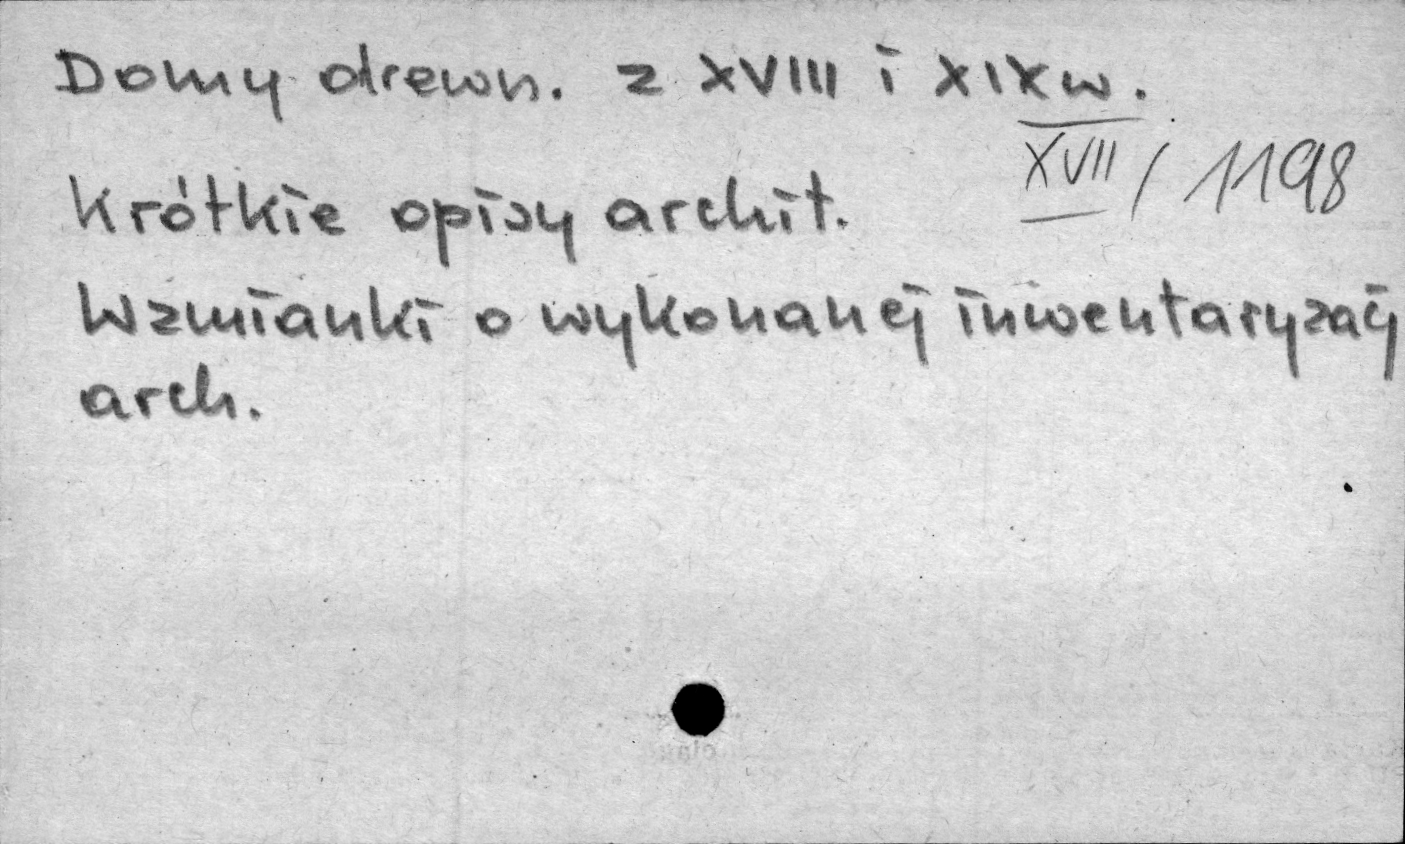 Domy drewn. z XVIII i XIX w.
XVII / 1198
Krótkie opisy archit.
Wzmianki o wykonanej inwentaryzacj
arch.